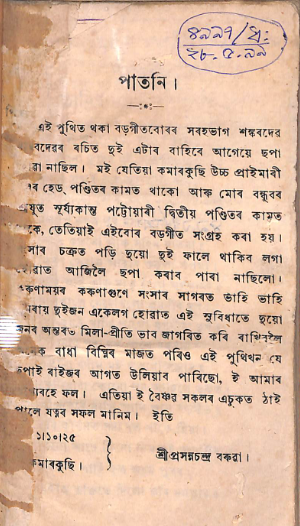 ৪৯৯৭/প্ৰঃ
২৮.৫.৯৯
পাতনি।
এই পুথিত থকা বড়গীতবোৰৰ সৰহভাগ শঙ্কৰদেৱ
ৱদেৱৰ ৰচিত দুই এটাৰ বাহিৰে আগেয়ে ছপা
ৱা নাছিল। মই যেতিয়া কমাৰকুছি উচ্চ প্ৰাইমাৰী
ৰ হেড্ পণ্ডিতৰ কামত থাকো আৰু মোৰ বন্ধুবৰ
যুত সূৰ্য্যকান্ত পট্টোৱাৰী দ্বিতীয় পণ্ডিতৰ কামত
কে, তেতিয়াই এইবোৰ বড়গীত সংগ্ৰহ কৰা হয়।
সাৰ চক্ৰত পড়ি ছুয়ো দুই ফালে থাকিব লগা
হোৱাত আজিলৈ ছপা কৰাব পৰা নাছিলো।
কৰুণাময়ৰ কৰুণাগুণে সংসাৰ সাগৰত ভাহি ভাহি
মৰায় দুইজন একেলগ হোৱাত এই সুবিধাতে ছুয়ো
জনৰ অন্তৰত মিলা-প্ৰীতি ভাব জাগৰিত কৰি ৰাখিবলৈ
ক বাধা বিঘ্নিৰ মাজত পৰিও এই পুথিখন যে
পাই ৰাইজৰ আগত উলিয়াব পাৰিছো, ই আমাৰ
াৰহে ফল। এতিয়া ই বৈষ্ণৱ সকলৰ এচুকত ঠাই
পালে যত্নৰ সফল মানিম। ইতি
১।১০।২৫
কমাৰকুছি।
শ্ৰীপ্ৰসন্নচন্দ্ৰ বৰুৱা।